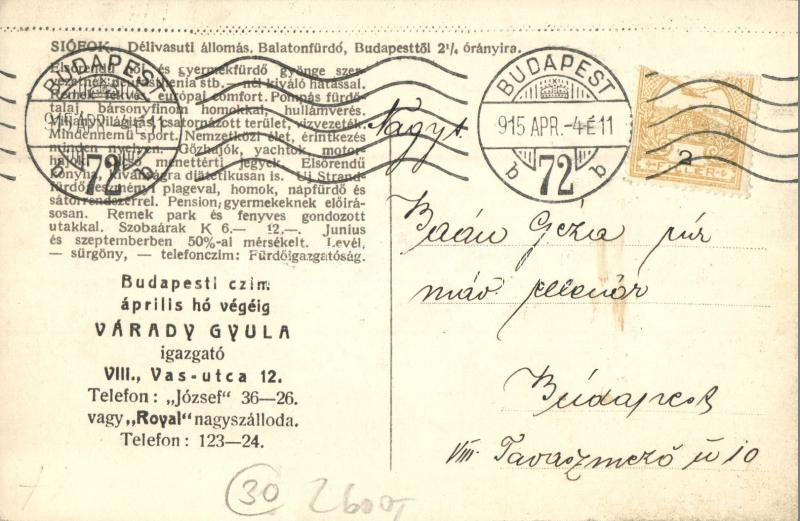 SIÓFOK. Délivasuti állomás, Balatonfürdő, Budapesttől 2¼ órányira.
Elsőrendű női és gyermekfürdő gyönge szer-
vezetnek, neurasthenia stb. - nél kiváló hatással.
Remek fekvés, európai comfort. Pompás fürdő-
telep, bársonyfinom homokkal, hullámverés.
Villanyvilágitás, csatornázott terület, vizvezeték.
Mindennemü sport. Nemzetközi élet, érintkezés
minden nyelven. Gőzhajók, yachtok, motor-
hajók. Olcsó menettérti jegyek. Elsőrendü
konyha, kivánságra diätetikusan is. Uj Strand-
fürdő eszményi plageval, homok, napfürdő és
sátorrendszerrel. Pension, gyermekeknek előirá-
sosan. Remek park és fenyves gondozott
utakkal. Szobaárak K 6.— 12.—. Junius
és szeptemberben 50%-al mérsékelt. Levél,
— sürgöny, — telefonczim: Fürdőigazgatóság.
Budapesti czim
április hó végéig
VÁRADY GYULA
igazgató
VIII., Vas-utca 12.
Telefon: „József" 36—26.
vagy „Royal" nagyszálloda.
Telefon: 123—24.
BUDAPEST
72
BUDAPEST
915 APR.-4 É11
b 72 b
2
FILLÉR
Nagys.
Baán Géza úr
máv ellenőr
Budapest
VIII. Tavaszmező u 10
30